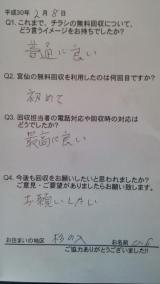 平成30年 2月 8日
Q1. これまで、チラシの無料回収について、
どう言うイメージをお持ちでしたか?
普通に良い
Q2. 富仙の無料回収を利用したのは何回目ですか?
初めて
Q3. 回収担当者の電話対応や回収時の対応は
どうでしたか?
最高に良い
Q4. 今後も回収をお願いしたいと思われましたか?
ご意見・ご要望がありましたらお願い致します。
お願いしたい
お住まいの地区 杉の入 お名前
ご協力ありがとうございました!!